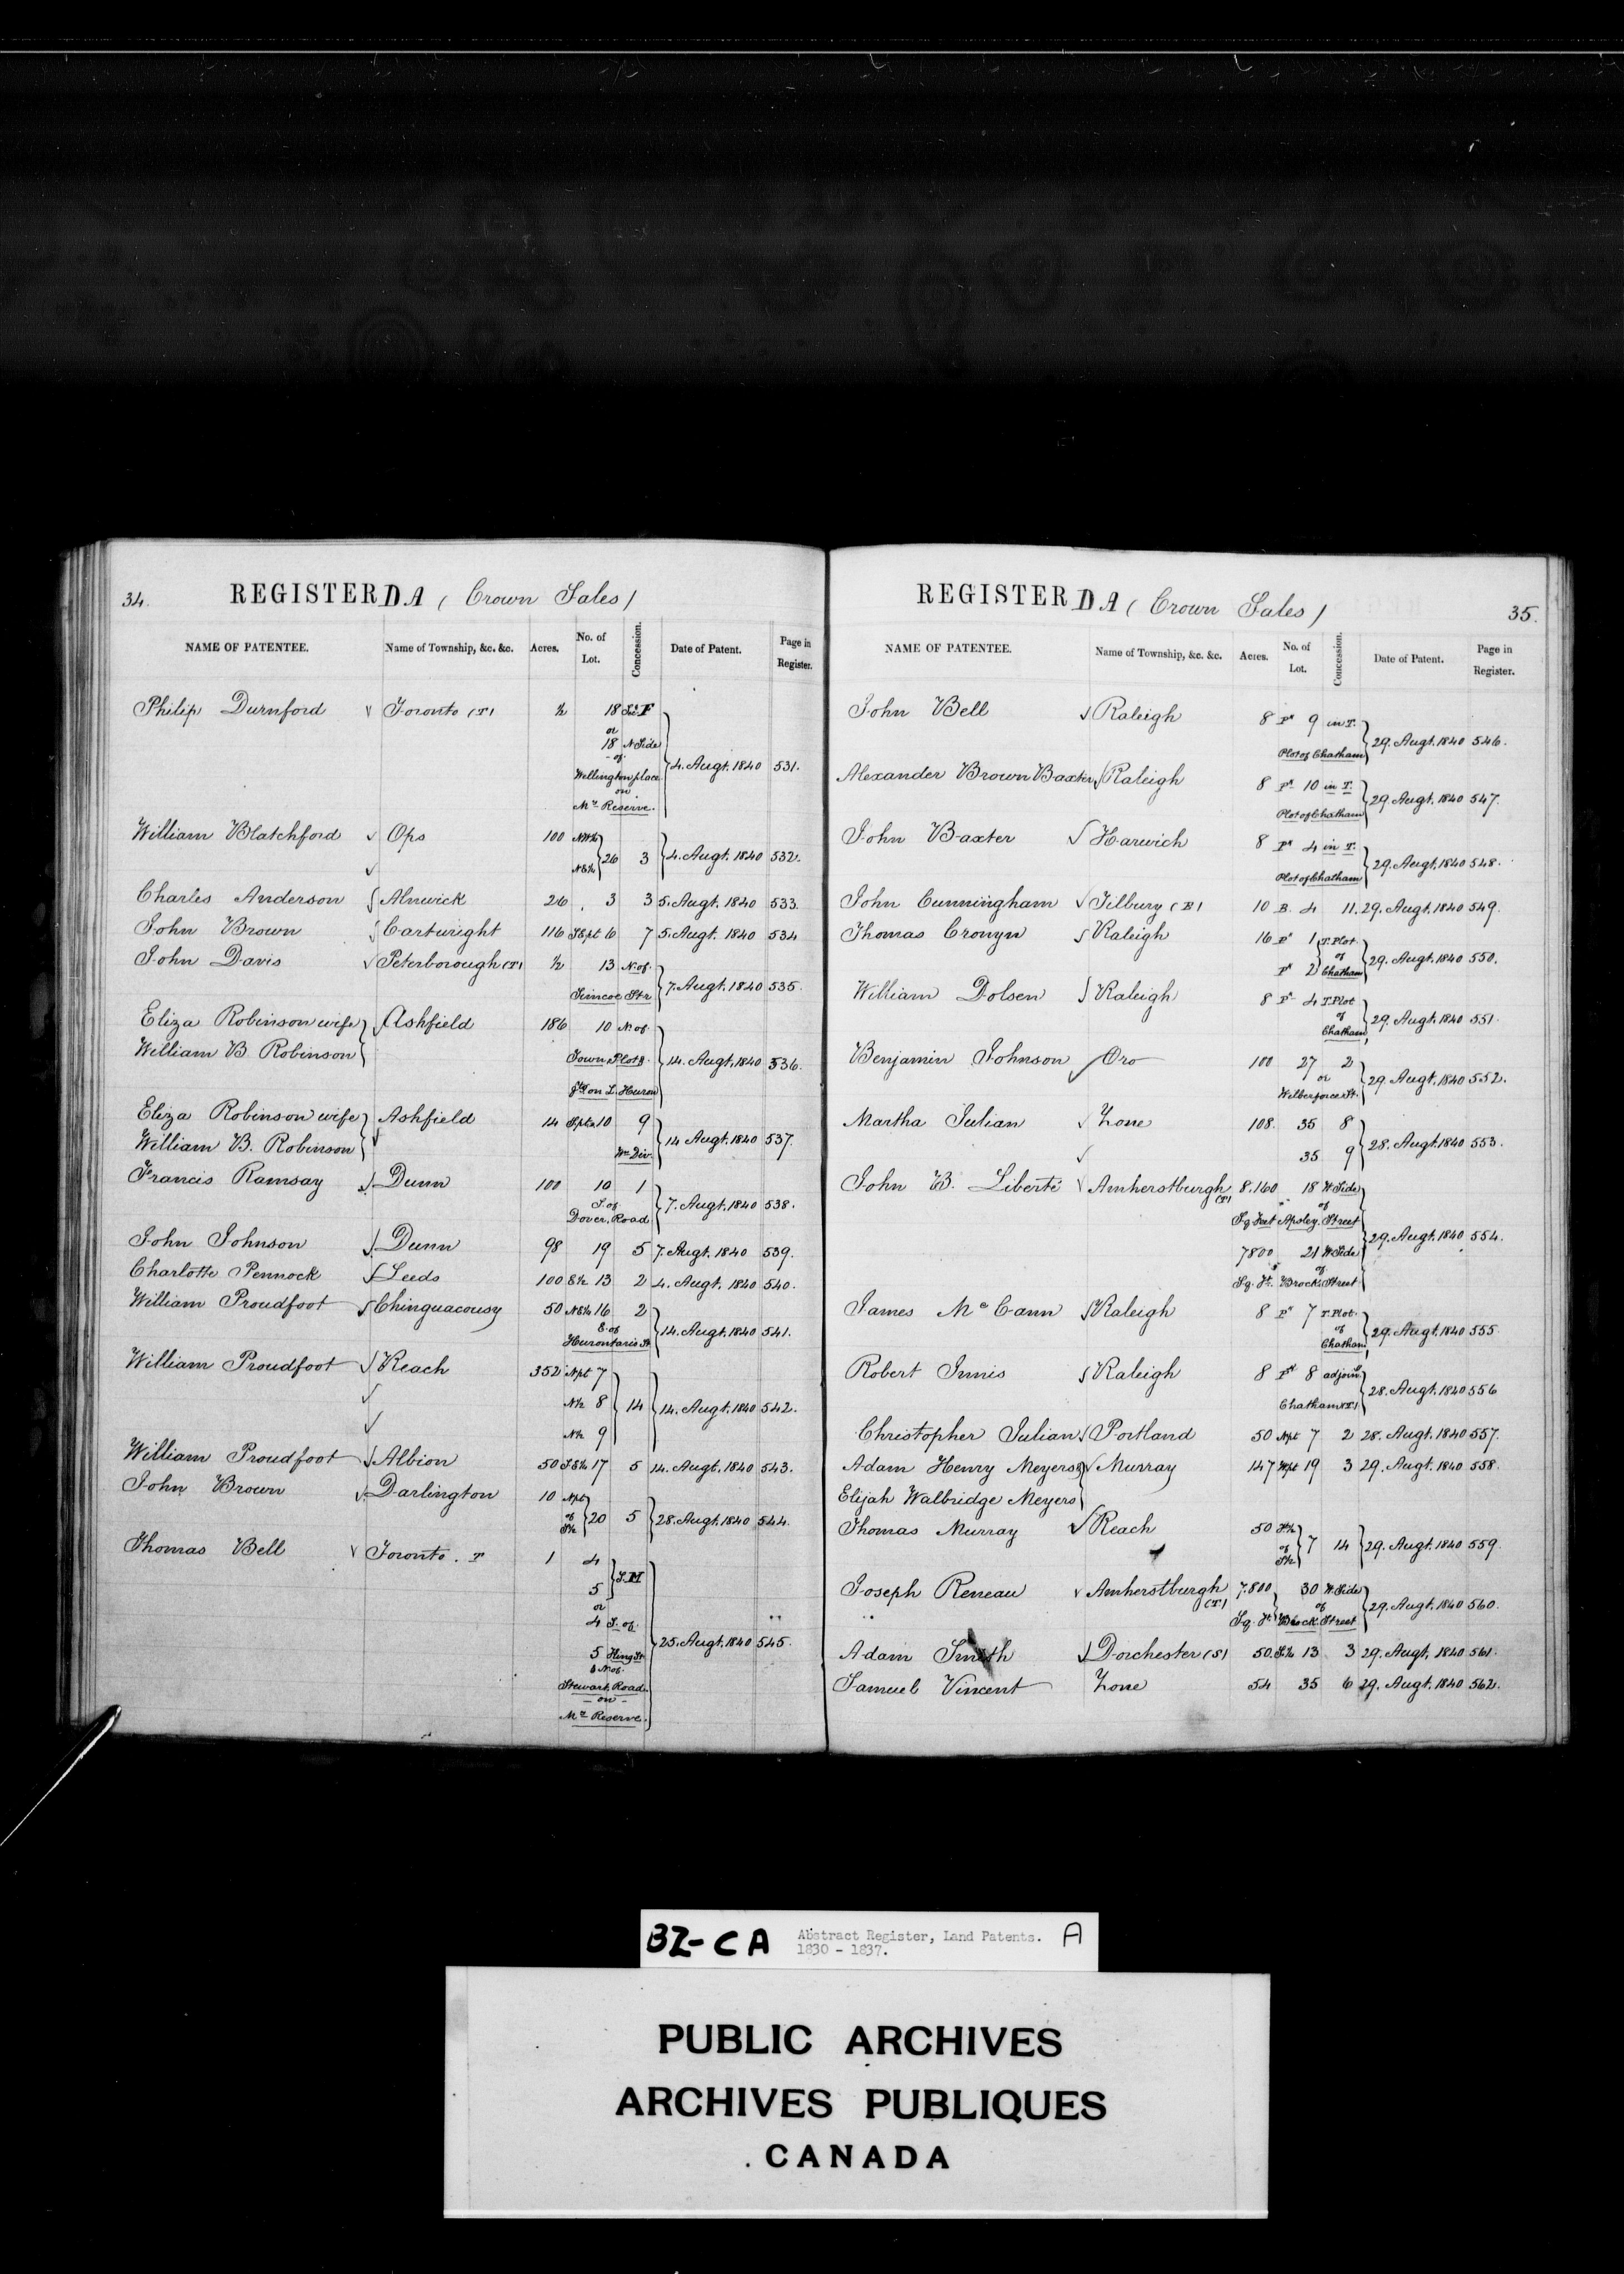 34.
REGISTER DA (Crown Sales)
NAME OF PATENTEE. Name of Township, &c. &c. Acres. No. of Lot. Concession. Date of Patent. Page in Register.
Philip Durnford Toronto (T) ½ 18 Sec. F
or
18 N Side
of
Wellington place 4. Augt. 1840 531.
on
Mr. Reserve.
William Blatchford Ops 100 NW½
NE½ 26 3 4. Augt. 1840 532.
Charles Anderson Alnwick 26 3 3 5. Augt. 1840 533.
John Brown Cartwright 116 SEpt 6 7 5. Augt. 1840 534
John Davis Peterborough (T) ½ 13 N. of
Simcoe Str 7. Augt. 1840 535.
Eliza Robinson wife Ashfield 186 10 N. of
William B. Robinson Town Plot 14. Augt. 1840 536.
on L. Huron
Eliza Robinson wife Ashfield 14 Spt 10 9
William B. Robinson Wn. Div. 14 Augt. 1840 537.
Francis Ramsay Dunn 100 10 1
S. of
Dover, Road 7. Augt. 1840 538.
John Johnson Dunn 98 19 5 7. Augt. 1840 539.
Charlotte Pennock Leeds 100 E½ 13 2 4. Augt. 1840 540.
William Proudfoot Chinguacousy 50 NE½ 16 2
E. of
Hurontario St 14. Augt. 1840 541.
William Proudfoot Reach 352 Npt 7
N½ 8 14 14. Augt. 1840 542.
N½ 9
William Proudfoot Albion 50 SE½ 17 5 14. Augt. 1840 543.
John Brown Darlington 10 Npt
of
S½ 20 5 28. Augt. 1840 544.
Thomas Bell Toronto. T 1 4
5
or
4 S. of
5 King St. 25. Augt. 1840 545.
& N. of
Stewart Road
- on -
Mr. Reserve.
35.
REGISTER DA (Crown Sales)
NAME OF PATENTEE. Name of Township, &c. &c. Acres. No. of Lot. Concession. Date of Patent. Page in Register.
John Bell Raleigh 8 Pk 9 in T.
Plot of Chatham 29. Augt. 1840 546.
Alexander Brown Baxter Raleigh 8 Pk 10 in T.
Plot of Chatham 29. Augt. 1840 547.
John Baxter Harwich 8 Pk 4 in T.
Plot of Chatham 29. Augt. 1840 548.
John Cunningham Tilbury (E) 10 B. 4 11. 29. Augt. 1840 549.
Thomas Cronyn Raleigh 16 Pk 1 T. Plot
of
Pk 2 Chatham 29. Augt. 1840 550.
William Dolsen Raleigh 8 Pk 4 T. Plot
of
Chatham 29. Augt. 1840 551.
Benjamin Johnson Oro 100 27 2
or
Wilberforce St. 29. Augt. 1840 552.
Martha Julian Zone 108. 35 8
35 9 28. Augt. 1840 553.
John B. Liberté Amherstburgh (T) 8.160 18 W. Side
of
Sq. Feet Apsley Street 29. Augt. 1840 554.
7800 21 W. Side
of
Sq. Ft. Brock Street
James McCann Raleigh 8 Pk 7 T. Plot
of
Chatham 29. Augt. 1840 555.
Robert Innis Raleigh 8 Pk 8 adjoing.
Chatham (T) 28. Augt. 1840 556
Christopher Julian Portland 50 Npt 7 2 28. Augt. 1840 557.
Adam Henry Meyers & Murray 147 Wpt 19 3 29. Augt. 1840 558.
Elijah Walbridge Meyers
Thomas Murray Reach 50 S½
of
S½ 7 14 29. Augt. 1840 559.
Joseph Reneau Amherstburgh (T) 7.800 30 W. Side
of
Sq. Ft. Brock Street 29. Augt. 1840 560.
Adam Smith Dorchester (S) 50. S½ 13 3 29. Augt. 1840 561.
Samuel Vincent Zone 54 35 6 29. Augt. 1840 562.
BZ-CA Abstract Register, Land Patents. A
1830 - 1837.
PUBLIC ARCHIVES
ARCHIVES PUBLIQUES
CANADA